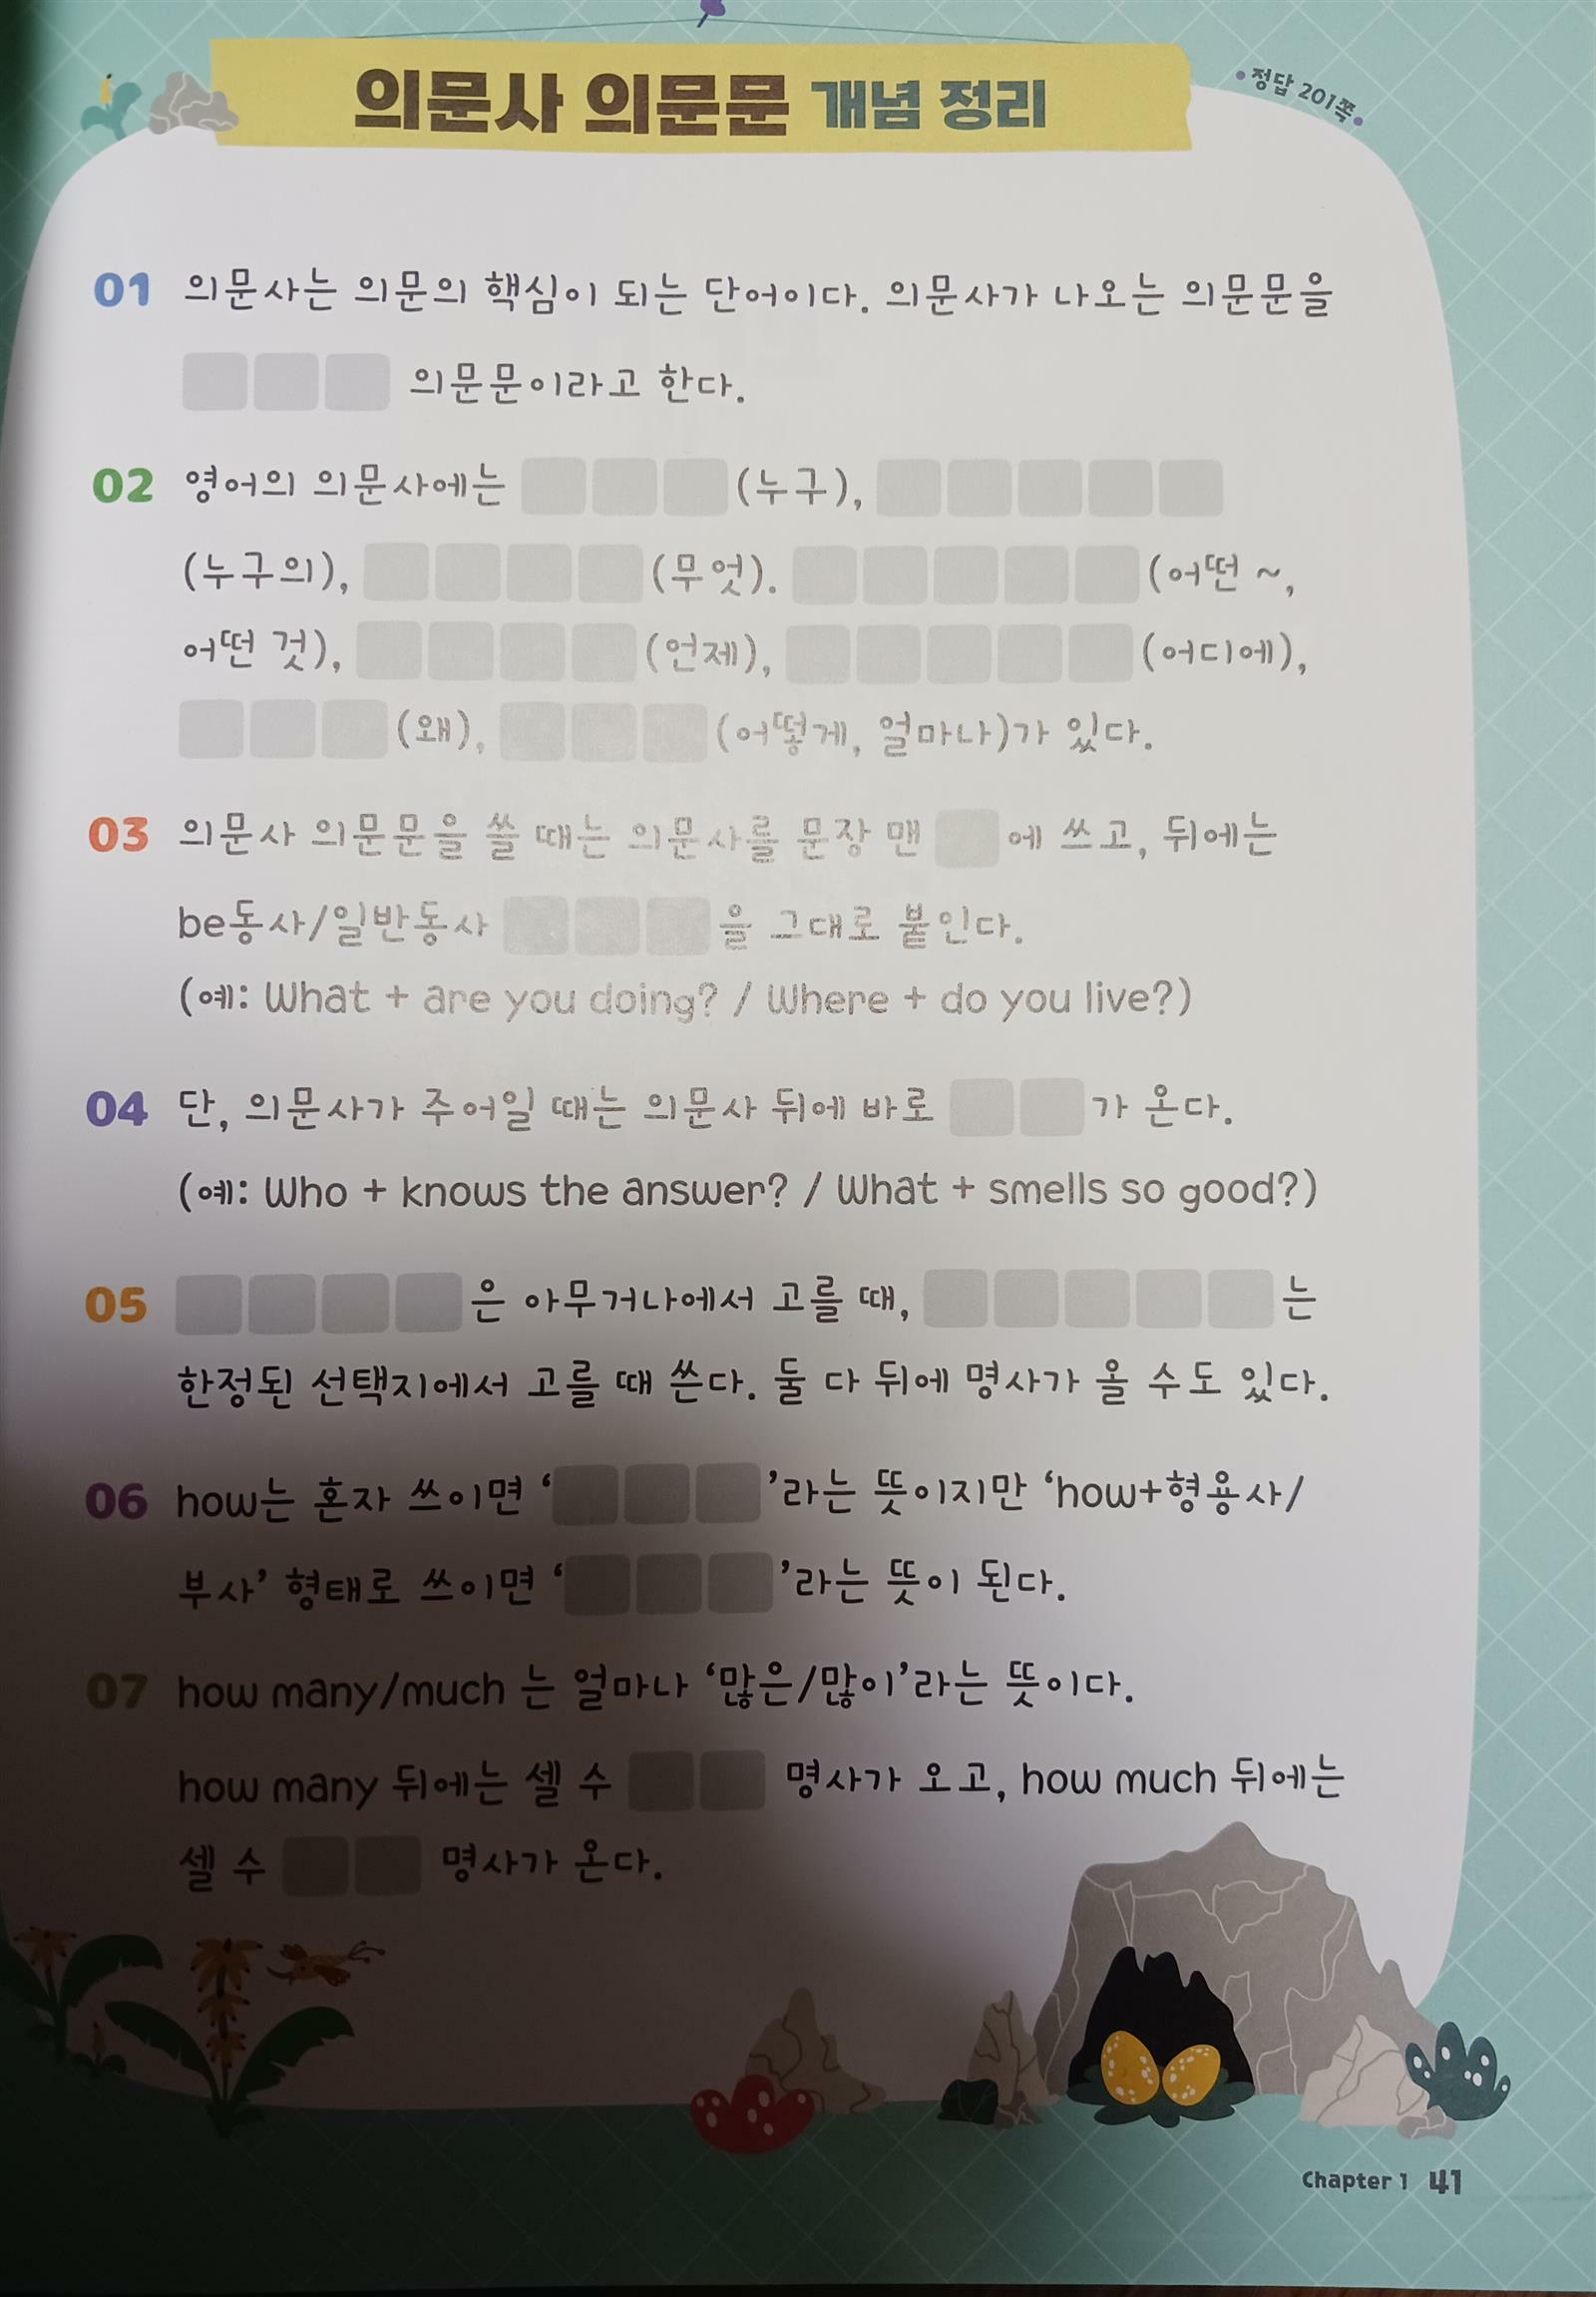 의문사 의문문 개념 정리
정답 201쪽
01 의문사는 의문의 핵심이 되는 단어이다. 의문사가 나오는 의문문을
의문문이라고 한다.
02 영어의 의문사에는 (누구),
(누구의), (무엇). (어떤 ~,
어떤 것), (언제), (어디에),
(왜), (어떻게, 얼마나)가 있다.
03 의문사 의문문을 쓸 때는 의문사를 문장 맨 에 쓰고, 뒤에는
be동사/일반동사 을 그대로 붙인다.
(예: What + are you doing? / Where + do you live?)
04 단, 의문사가 주어일 때는 의문사 뒤에 바로 가 온다.
(예: Who + knows the answer? / What + smells so good?)
05 은 아무거나에서 고를 때, 는
한정된 선택지에서 고를 때 쓴다. 둘 다 뒤에 명사가 올 수도 있다.
06 how는 혼자 쓰이면 ‘ ’라는 뜻이지만 ‘how+형용사/
부사’ 형태로 쓰이면 ‘ ’라는 뜻이 된다.
07 how many/much 는 얼마나 ‘많은/많이’라는 뜻이다.
how many 뒤에는 셀 수 명사가 오고, how much 뒤에는
셀 수 명사가 온다.
Chapter 1 41